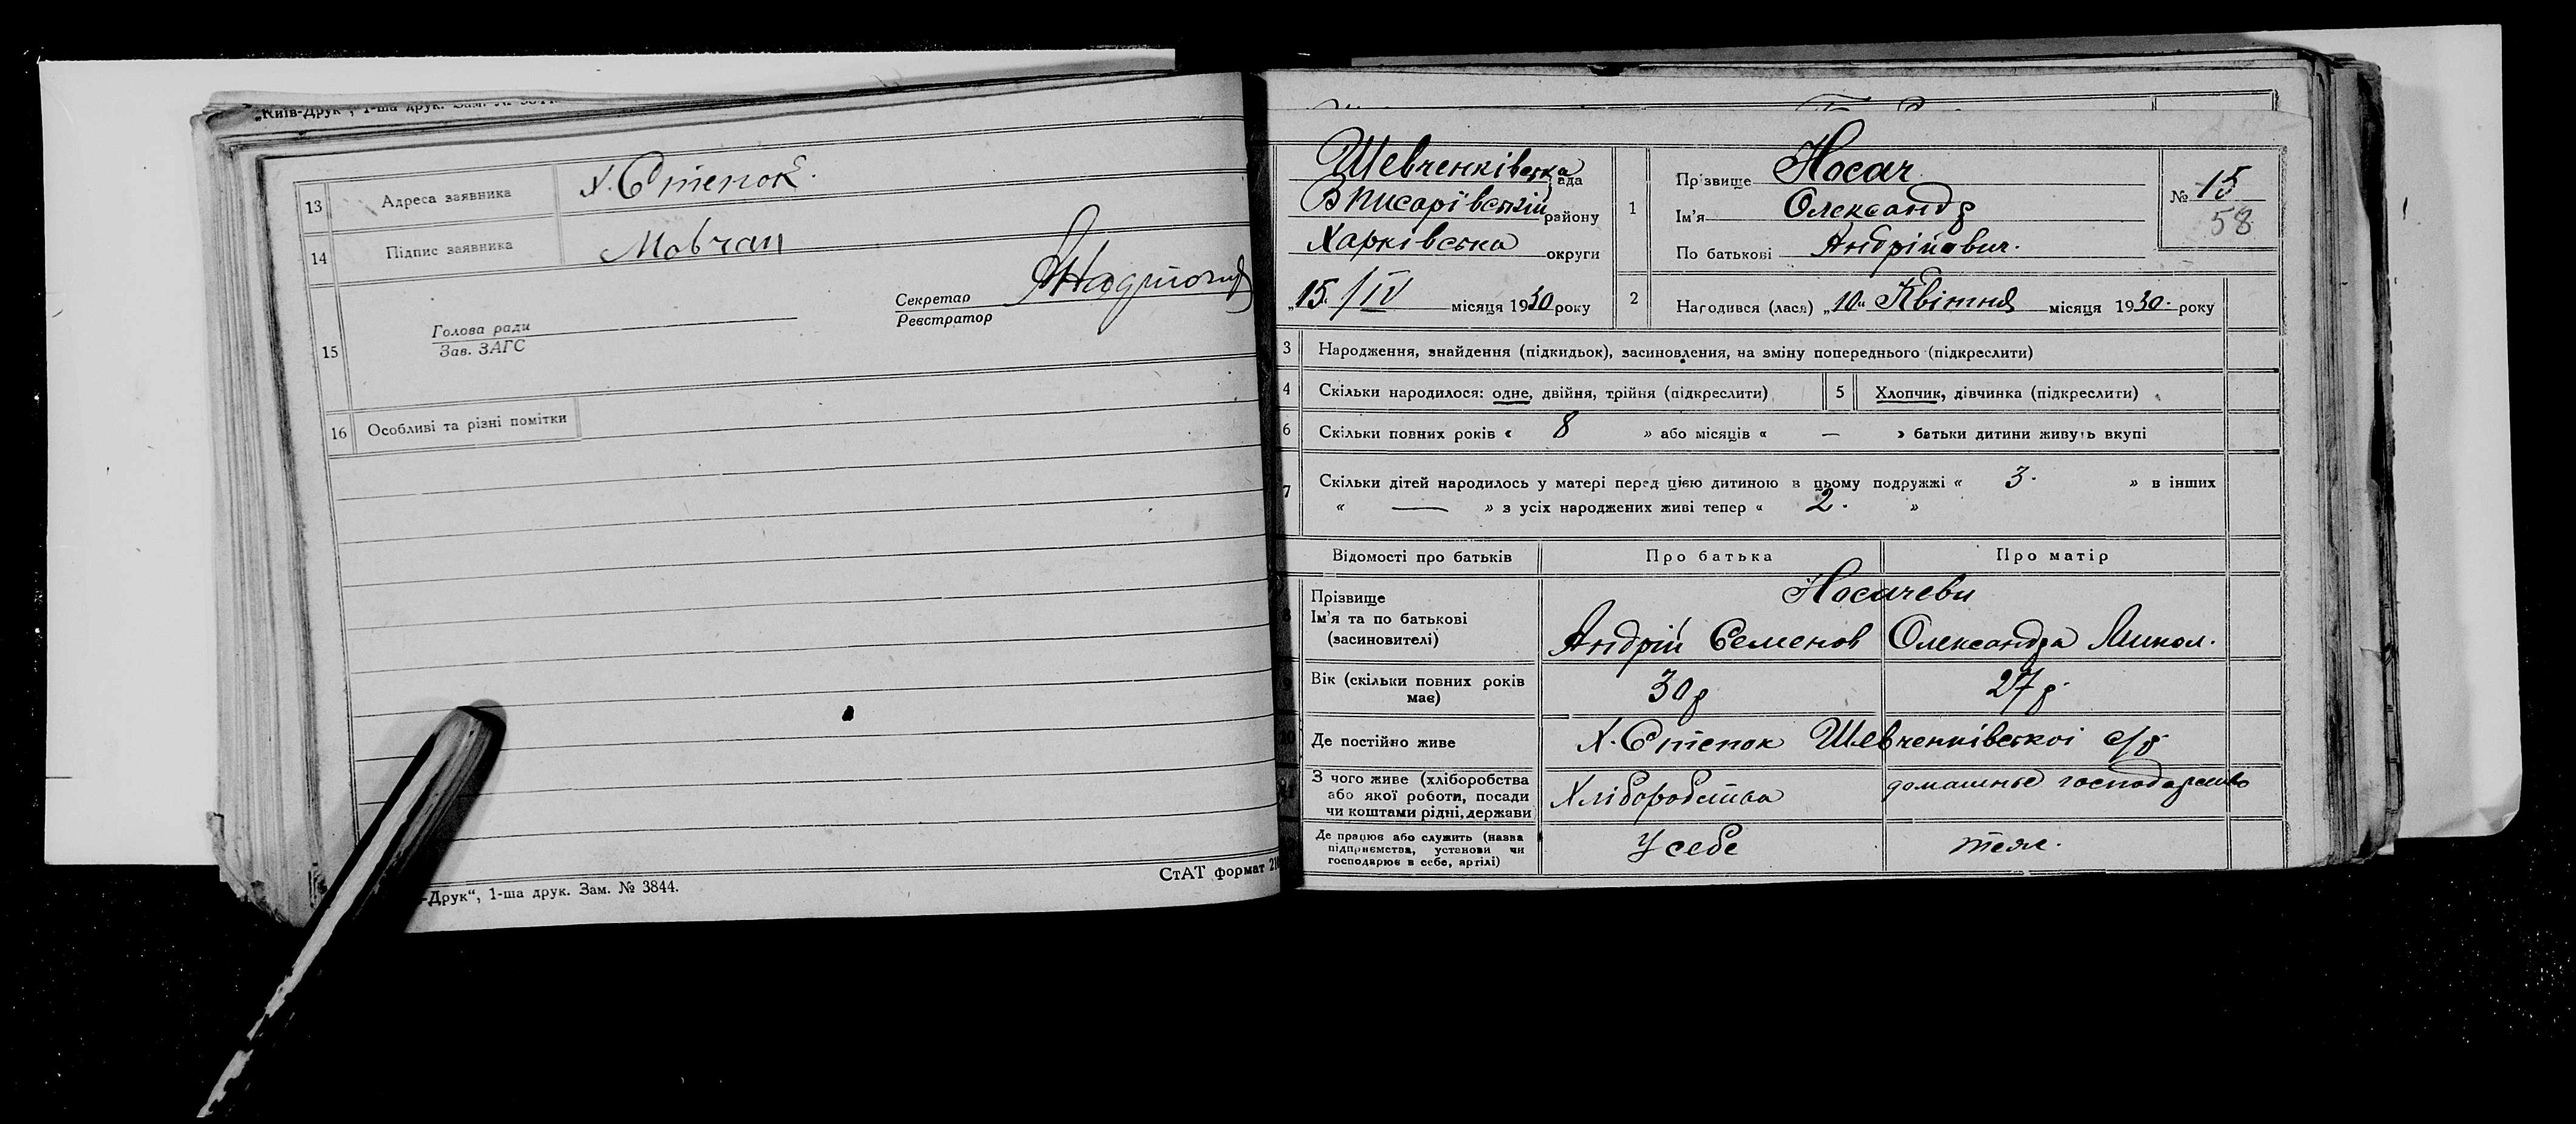 „Київ-Друк“, 1-ша друк. Зам. №
13 Адреса заявника Х. Степок.
14 Підпис заявника Мовчан
15 Голова ради
Зав. ЗАГС
Секретар
Реєстратор
16 Особливі та різні помітки
-Друк“, 1-ша друк. Зам. № 3844.
СтАТ формат
Шевченківська рада
В Писарівський району
Харківська округи
„15. /IV місяця 1930 року
1 Прізвище Носач
Ім'я Олександр
По батькові Андрійович.
№ 15
58
2 Народився (лася) „10“ Квітня місяця 1930. року
3 Народження, знайдення (підкидьок), засиновлення, на зміну попереднього (підкреслити)
4 Скільки народилося: одне, двійня, трійня (підкреслити)
5 Хлопчик, дівчинка (підкреслити)
6 Скільки повних років « 8 » або місяців « — » батьки дитини живуть вкупі
7 Скільки дітей народилось у матері перед цією дитиною в цьому подружжі « 3. » в інших
« — » з усіх народжених живі тепер « 2. »
Відомості про батьків Про батька Про матір
Прізвище Носачеви
Ім'я та по батькові
(засиновителі) Андрій Семенов Олександра Микол.
Вік (скільки повних років
має) 30 р 27 р.
Де постійно живе Х. Степок Шевченківської с/р.
З чого живе (хліборобства
або якої роботи, посади
чи коштами рідні, держави Хліборобства домашнье господарство
Де працює або служить (назва
підприємства, установи чи
господарює в себе, артілі) У себе теж.